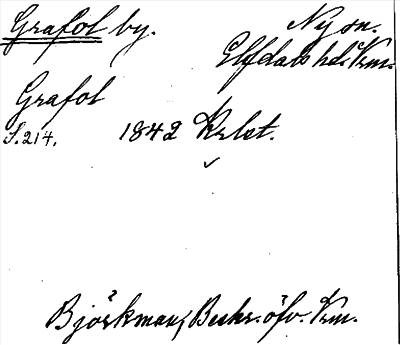 Grafol by.
Ny sn.
Elfdals hd. Krm.
Grafol
S. 214.
1842 Krlct.
Björkman, Beskr. öfv. Vrm.